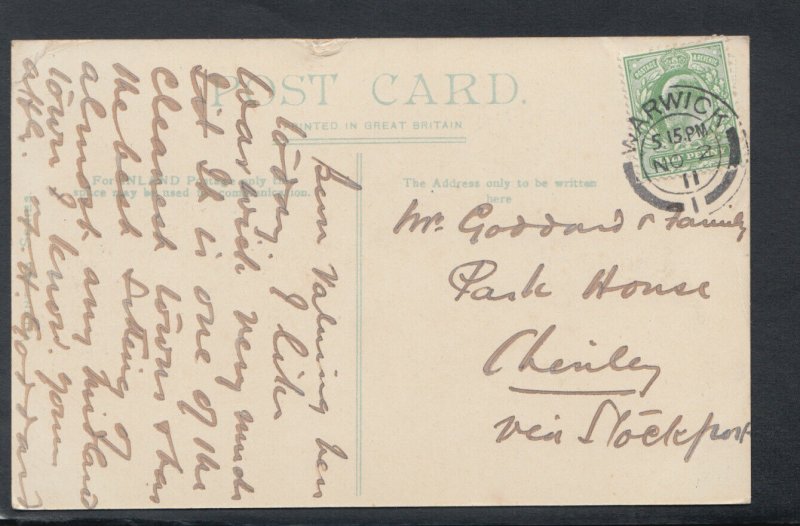 POST CARD.
PRINTED IN GREAT BRITAIN.
For INLAND Postage only this
space may be used for communication.
The Address only to be written
here
WARWICK
5.15.PM
NO 2
11
1
Mr. Goddard & Family
Park House
Chinley
via Stockport
Been Valuing here
today I like
Warwick very much
It is one of the
cleanest towns & has
the best setting of
almost any Midland
town I know. Yours
affly. Goddard